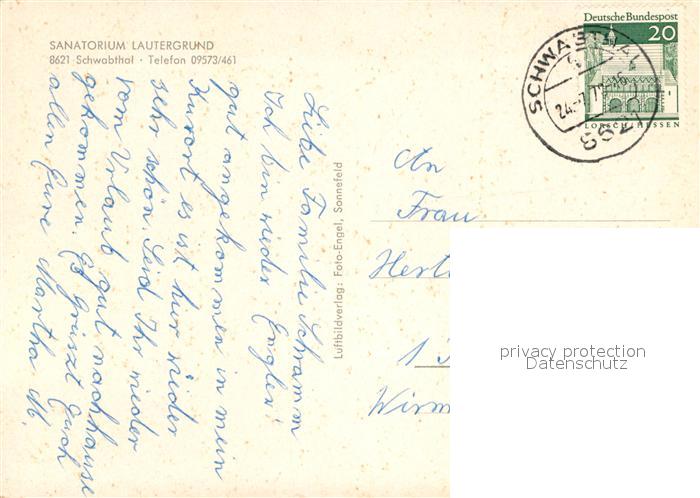 SANATORIUM LAUTERGRUND
8621 Schwabthal · Telefon 09573/461
Liebe Familie Schramm
Ich bin wieder
gut angekommen in mein
Kurort es ist hier wieder
sehr schön. Seid Ihr wieder
vom Urlaub gut nachhause
gekommen. Es grüszt Euch
allen Eure Martha M.
Luftbildverlag: Foto-Engel, Sonnefeld
Deutsche Bundespost
20
LORSCH/HESSEN
SCHWABTHAL
8621
An
Frau
privacy protection
Datenschutz